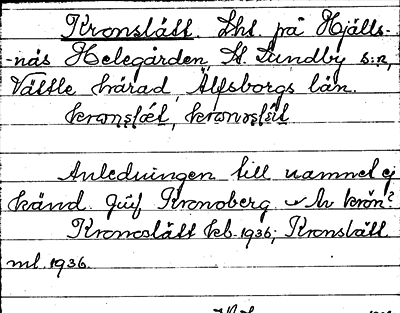 Kronslätt. Lht. på Hjälls-
-näs Helegården, St. Lundby s:n,
Vättle härad, Älfsborgs län.
kranslæt, kranoslät
Anledningen till namnet ej
känd. Jùf Kronoberg ~ Av krön?
Kronoslätt kb. 1936; Kronslätt
ml. 1936.